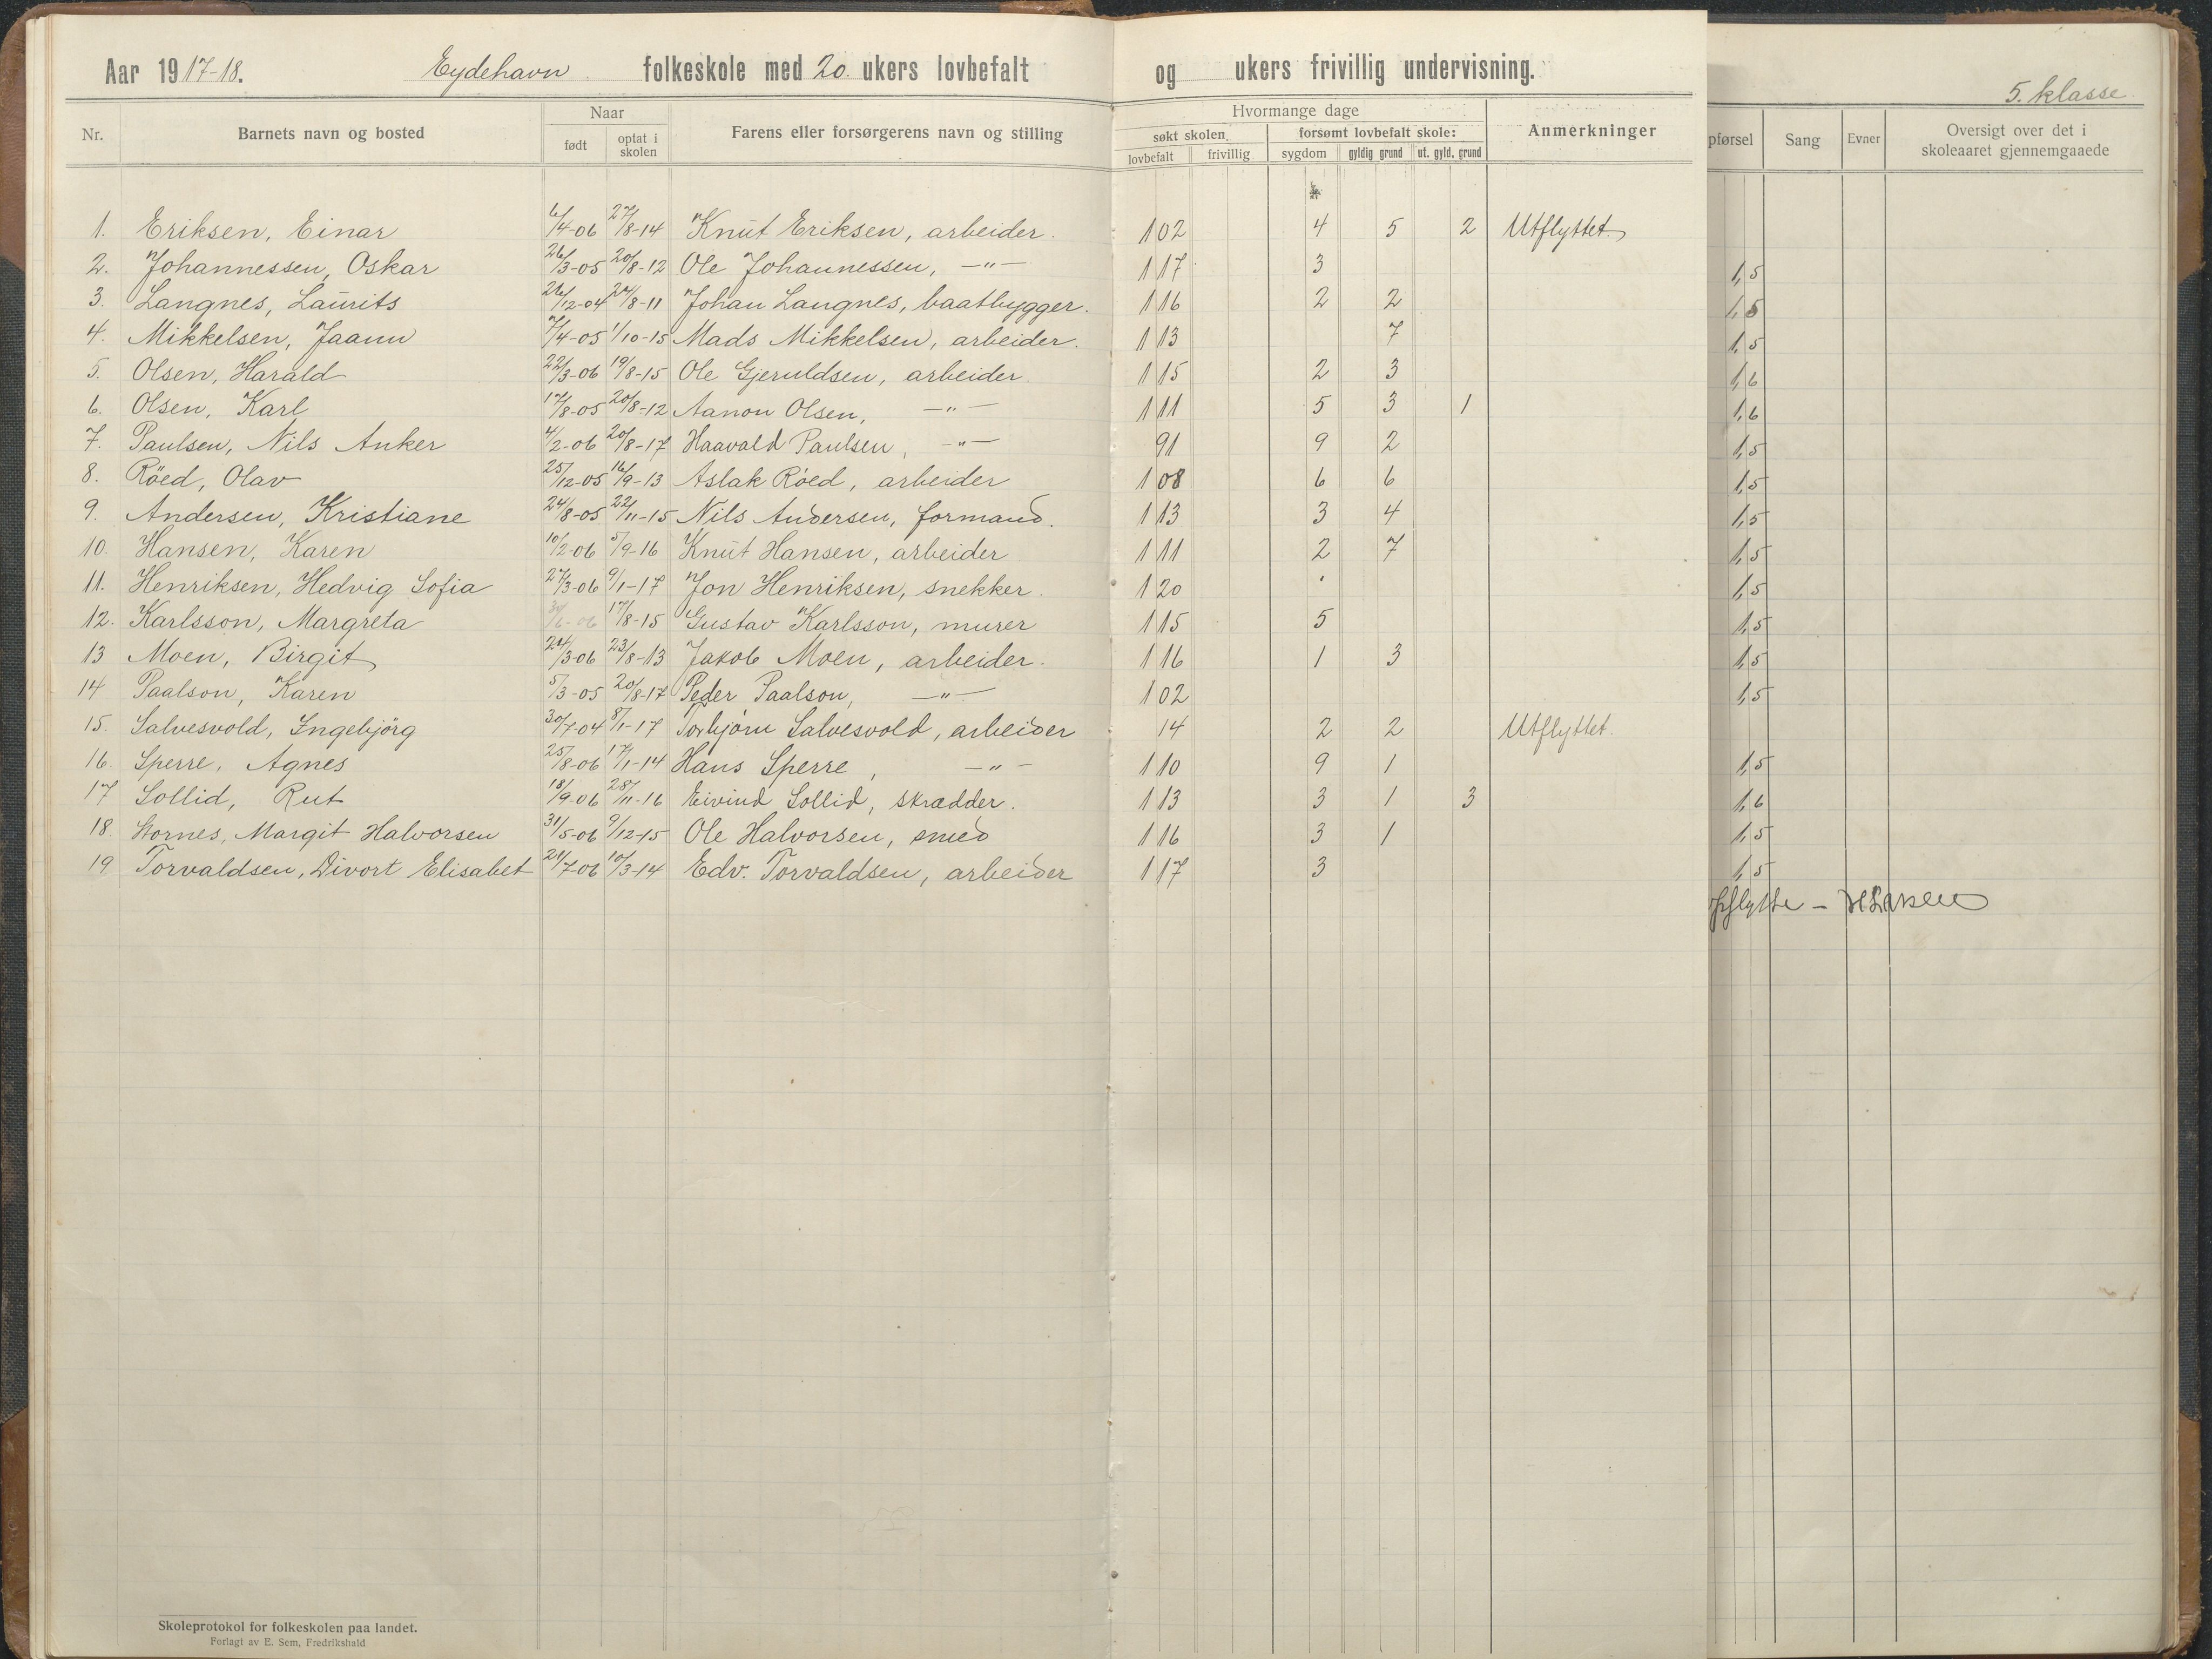 Aar 1917-18. Eydehavn folkeskole med 20. ukers lovbefalt og ukers frivillig undervisning.
5. klasse
Nr. Barnets navn og bosted Naar født optat i skolen Farens eller forsørgerens navn og stilling Hvormange dage søkt skolen lovbefalt frivillig forsømt lovbefalt skole: sygdom gyldig grund ut. gyld. grund Anmerkninger pførsel Sang Evner Oversigt over det i skoleaaret gjennemgaaede
1. Eriksen, Einar 6/4-06 27/8-14 Knut Eriksen, arbeider. 102 4 5 2 Utflyttet
2. Johannessen, Oskar 26/3-05 20/8-12 Ole Johannessen, -"- 117 3 1,5
3. Langnes, Laurits 26/12-04 24/8-11 Johan Langnes, baatbygger. 116 2 2 1,5
4. Mikkelsen, Jaann 7/4-05 1/10-15 Mads Mikkelsen, arbeider. 113 7 1,5
5. Olsen, Harald 22/3-06 19/8-15 Ole Gjeruldsen, arbeider. 115 2 3 1,6
6. Olsen, Karl 17/8-05 20/8-12 Aanon Olsen, -"- 111 5 3 1 1,6
7. Paulsen, Nils Anker 4/2-06 20/8-17 Haavald Paulsen, -"- 91 9 2 1,5
8. Röed, Olav 25/12-05 16/9-13 Aslak Röed, arbeider 108 6 6 1,5
9. Andersen, Kristiane 24/8-05 22/11-15 Nils Andersen, formand. 113 3 4 1,5
10. Hansen, Karen 10/2-06 5/9-16 Knut Hansen, arbeider 111 2 7 1,5
11. Henriksen, Hedvig Sofia 27/3-06 9/1-17 Jon Henriksen, snekker. 120 1,5
12. Karlsson, Margreta 17/8-15 Gustav Karlsson, murer 115 5 1,5
13 Moen, Birgit 24/3-06 23/8-13 Jakob Moen, arbeider. 116 1 3 1,5
14 Paalson, Karen 5/3-05 20/8-17 Peder Paalson, -"- 102 1,5
15. Salvesvold, Ingebjörg 30/7-04 8/1-17 Torbjörn Salvesvold, arbeider 14 2 2 Utflyttet.
16. Sperre, Agnes 25/8-06 17/1-14 Hans Sperre, -"- 110 9 1 1,5
17 Sollid, Rut 18/9-06 28/11-16 Eivind Sollid, skrædder. 113 3 1 3 1,6
18. Stornes, Margit Halvorsen 31/5-06 9/12-15 Ole Halvorsen, smed 116 3 1 1,5
19 Torvaldsen, Divort Elisabet 21/7-06 10/3-14 Edv. Torvaldsen, arbeider 117 3 1,5
Skoleprotokol for folkeskolen paa landet.
Forlagt av E. Sem, Fredrikshald